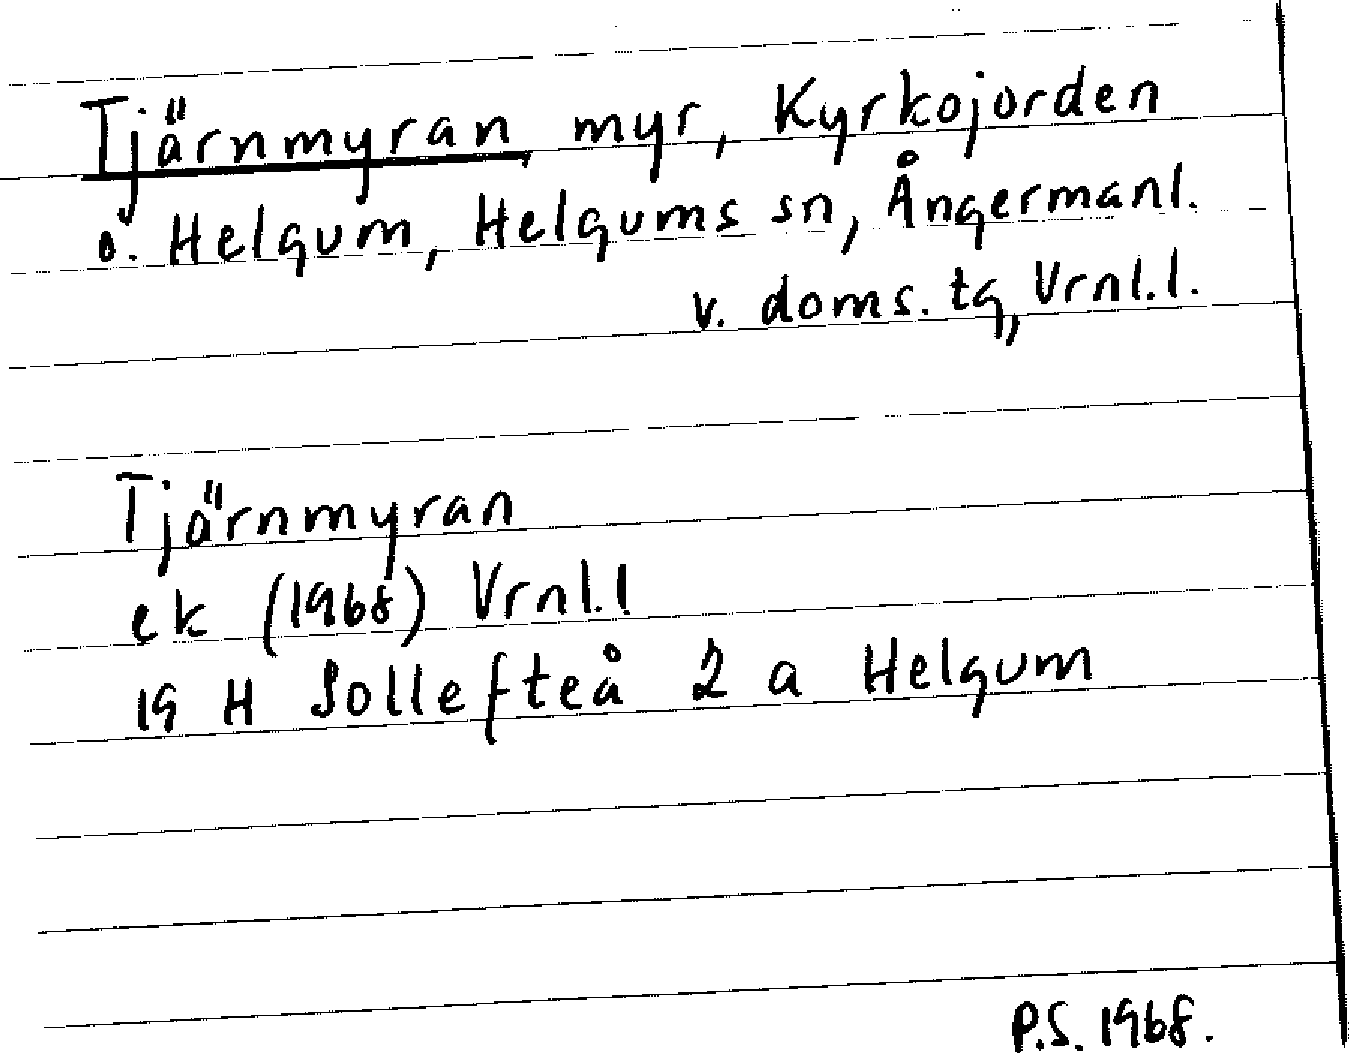 Tjärnmyran, myr, Kyrkojorden
o. Helgum, Helgums sn, Ångermanl.
v. doms. tg, Vrnl.l.
Tjärnmyran
ek (1968) Vrnl.l
19 H Sollefteå 2 a Helgum
P.S. 1968.